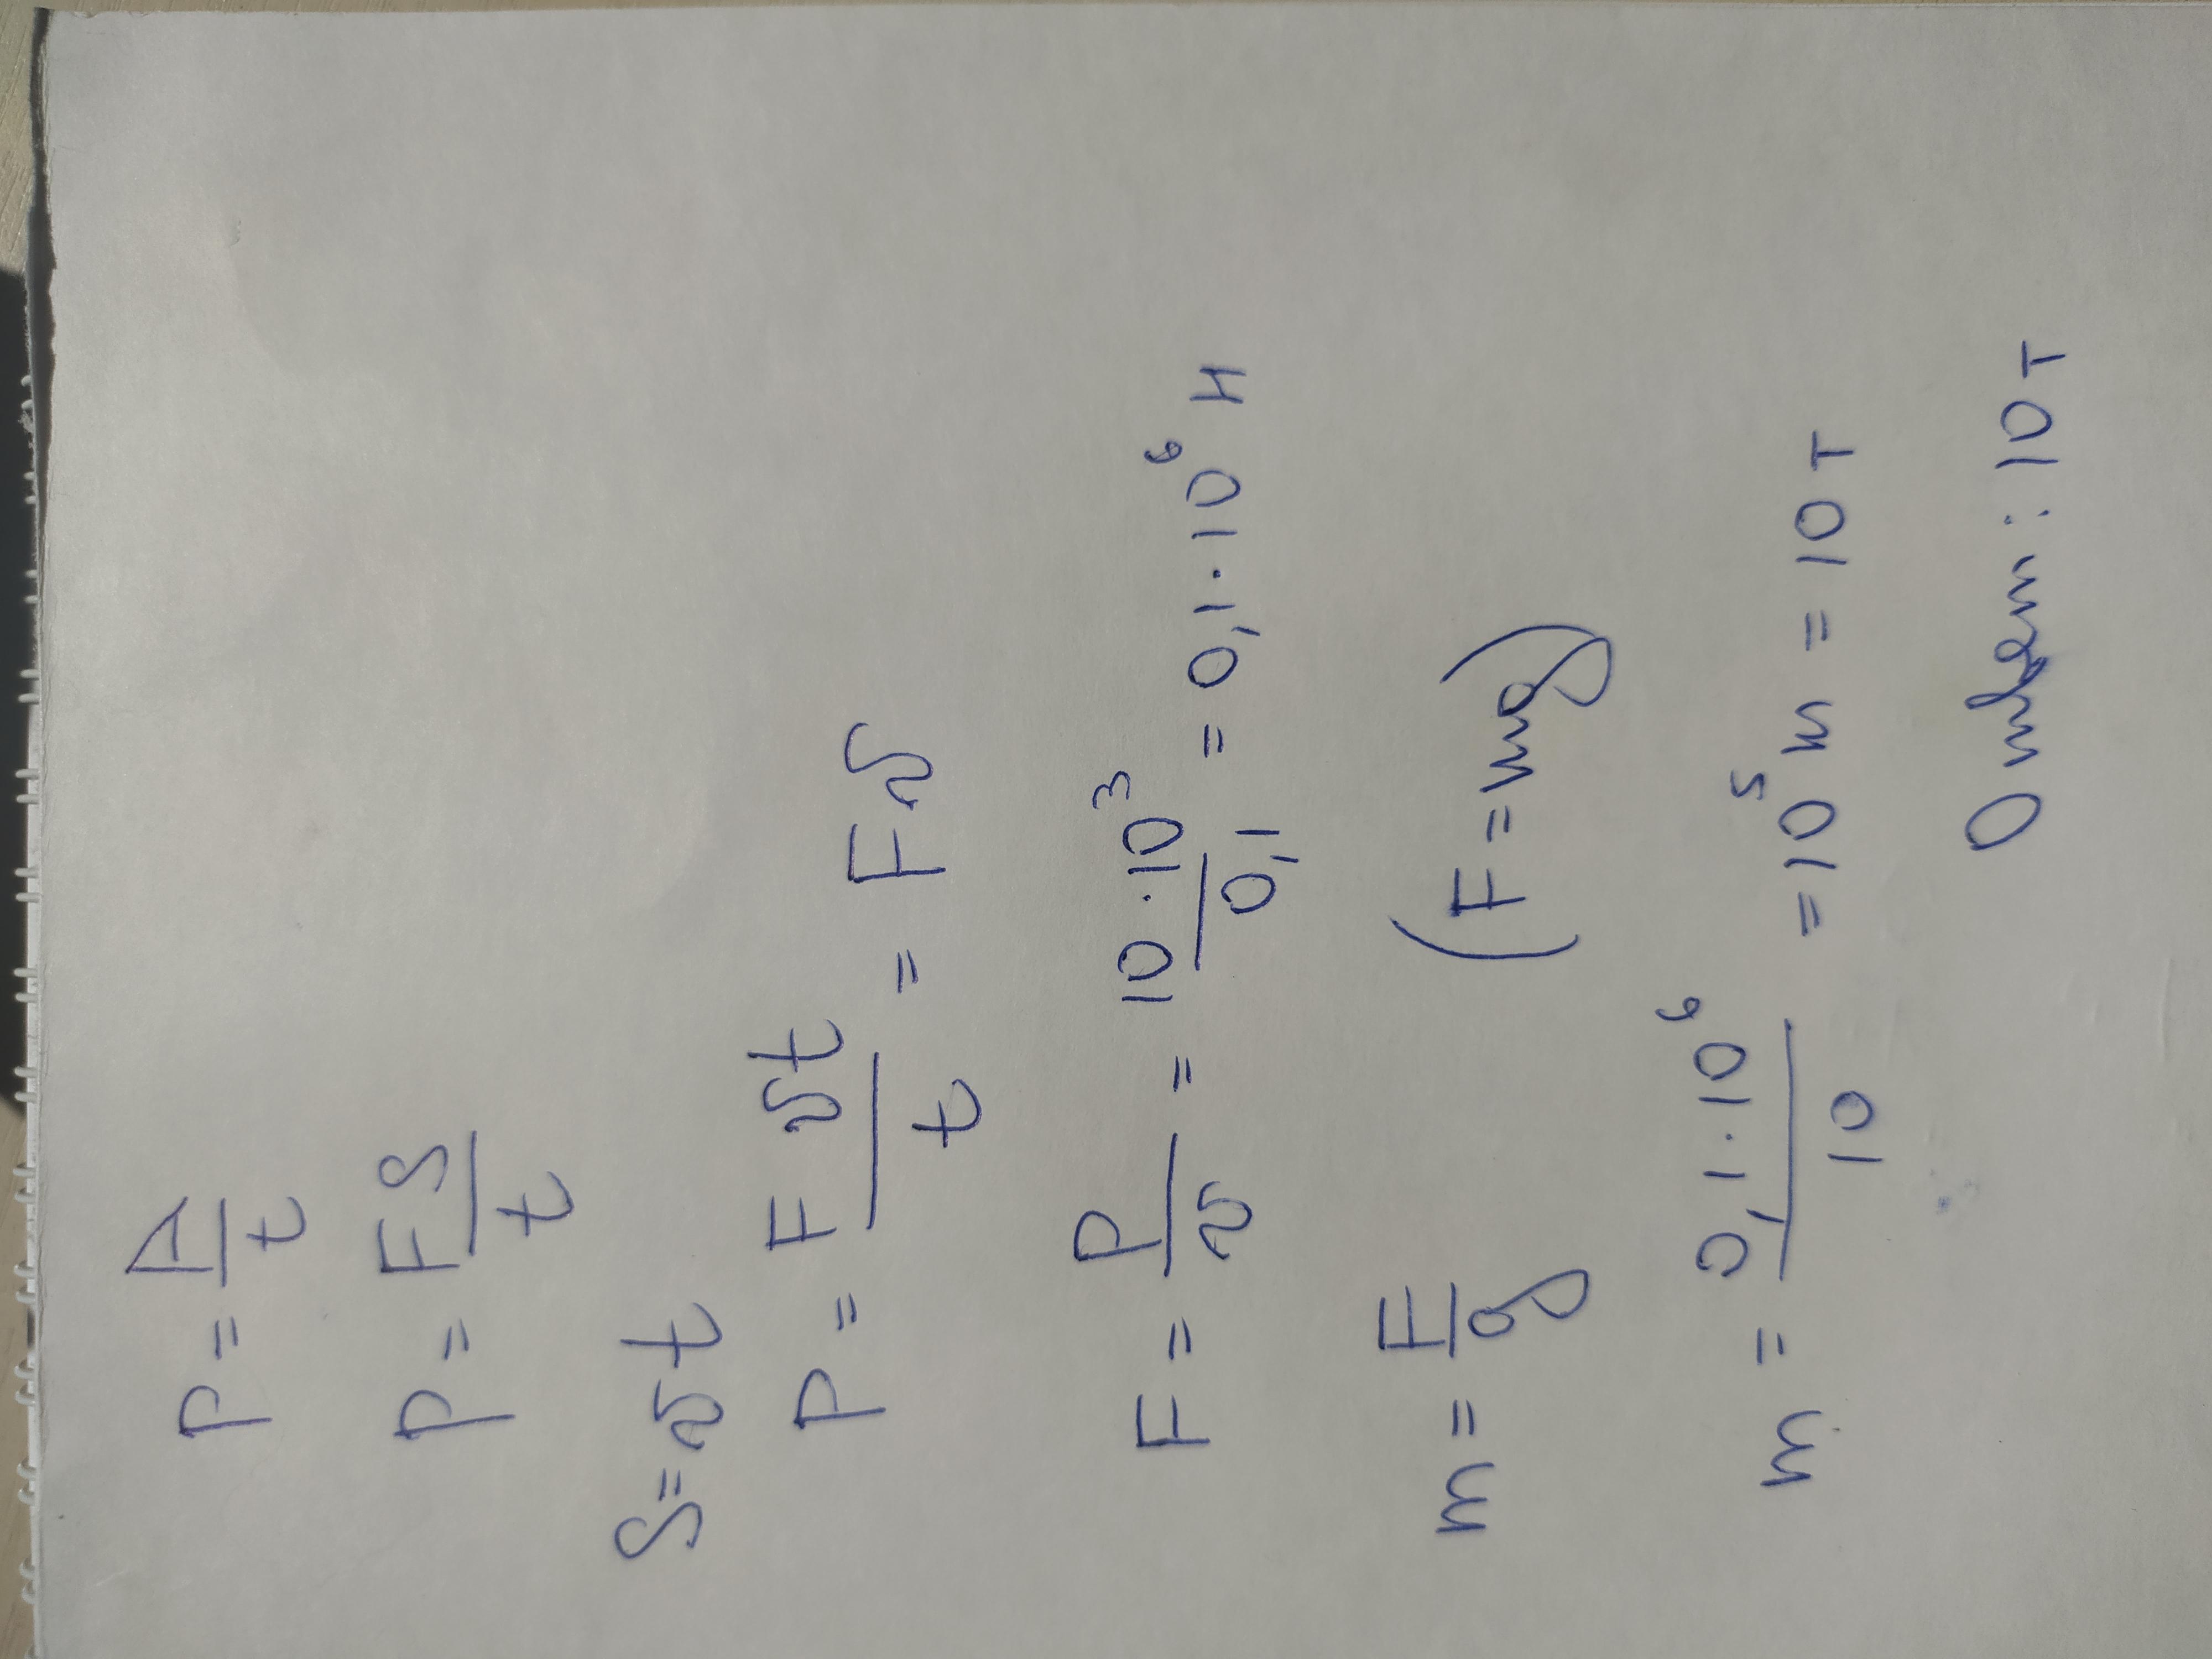 P = A/t
P = FS/t
S = vt
P = Fvt/t = Fv
F = P/v = 10·10³/0,1 = 0,1·10⁶ Н
m = F/g (F = mg)
m = 0,1·10⁶/10 = 10⁵ м = 10 т
Ответ: 10 т